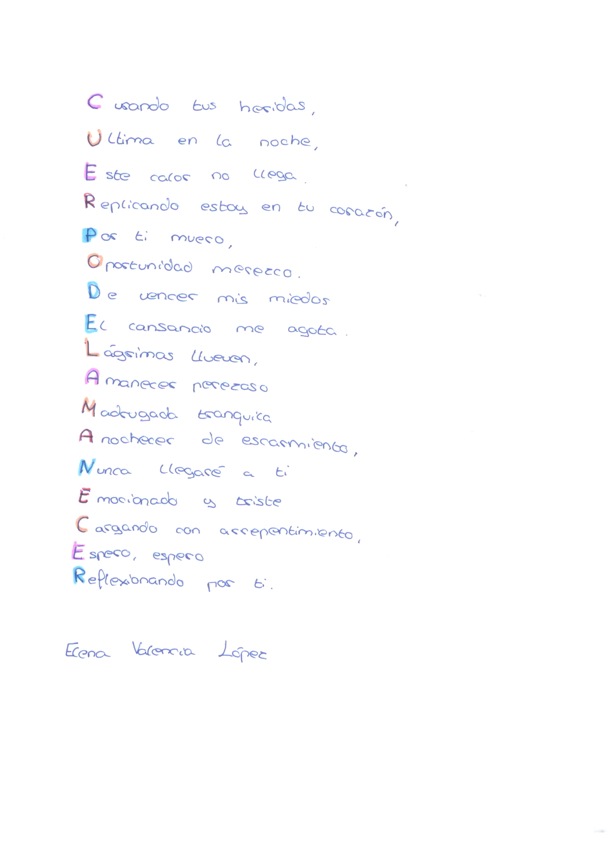 Curando tus heridas,
Ultima en la noche,
Este calor no llega.
Replicando estoy en tu corazón,
Por ti muero,
Oportunidad merezco.
De vencer mis miedos
El cansancio me agota.
Lágrimas llueven,
Amanecer perezoso
Madrugada tranquila
Anochecer de escarmiento,
Nunca llegaré a ti
Emocionado y triste
Cargando con arrepentimiento,
Espero, espero
Reflexionando por ti.
Elena Valencia López